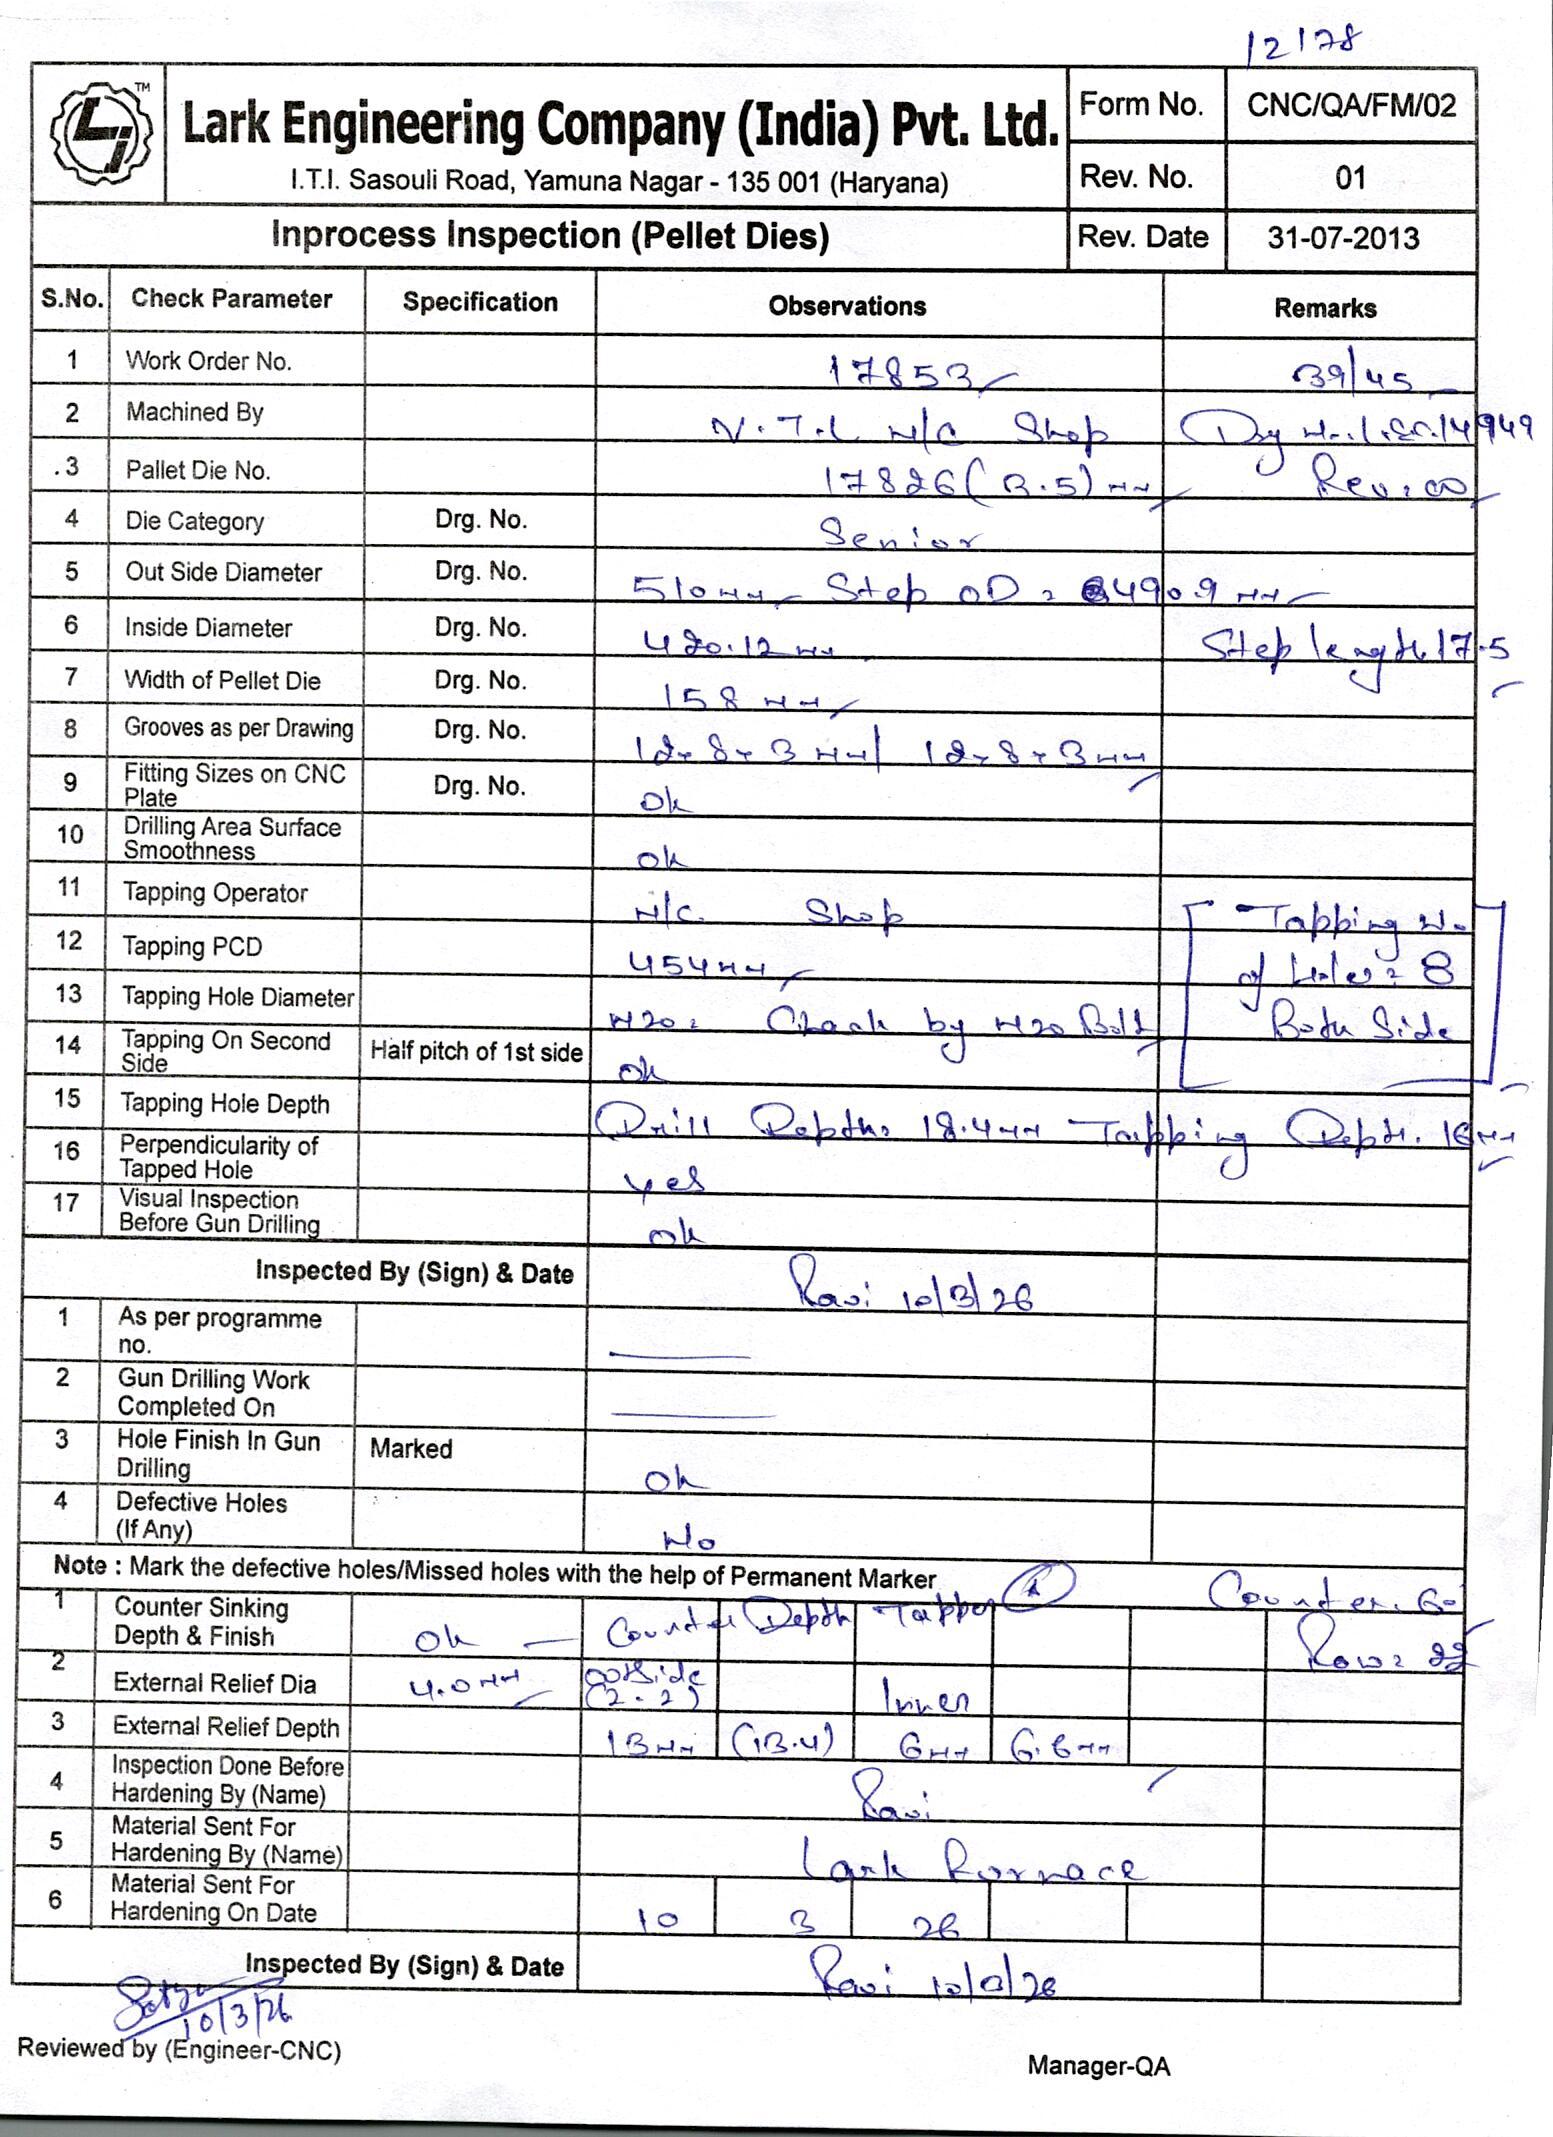 12178
TM
Lark Engineering Company (India) Pvt. Ltd.
I.T.I. Sasouli Road, Yamuna Nagar - 135 001 (Haryana)
Form No. CNC/QA/FM/02
Rev. No. 01
Inprocess Inspection (Pellet Dies) Rev. Date 31-07-2013
S.No. Check Parameter Specification Observations Remarks
1 Work Order No. 17853 39/45
2 Machined By N.T.L N/C Shop Drg 14949
.3 Pallet Die No. 17826 (3.5) mm Rev: 00
4 Die Category Drg. No. Senior
5 Out Side Diameter Drg. No. 510mm Step OD = 490.9 mm
6 Inside Diameter Drg. No. 420.12 mm Step length 17.5
7 Width of Pellet Die Drg. No. 158 mm
8 Grooves as per Drawing Drg. No. 12x8x3 mm/ 12x8x3mm
9 Fitting Sizes on CNC Plate Drg. No. Ok
10 Drilling Area Surface Smoothness Ok
11 Tapping Operator N/C Shop Tapping N.
12 Tapping PCD 454mm of Holes: 8
13 Tapping Hole Diameter M20: Check by M20 Bolt Both Side
14 Tapping On Second Side Half pitch of 1st side Ok
15 Tapping Hole Depth Drill Depth: 18.4mm Tapping Depth. 16mm
16 Perpendicularity of Tapped Hole Yes
17 Visual Inspection Before Gun Drilling Ok
Inspected By (Sign) & Date Ravi 10/3/26
1 As per programme no.
2 Gun Drilling Work Completed On
3 Hole Finish In Gun Drilling Marked Ok
4 Defective Holes (If Any) No
Note : Mark the defective holes/Missed holes with the help of Permanent Marker
Counter: 60
1 Counter Sinking Depth & Finish Ok Counter Depth Tapper Row: 22
2 External Relief Dia 4.0mm outside (2.2) Inner
3 External Relief Depth 13mm (13.4) 6mm 6.6mm
4 Inspection Done Before Hardening By (Name) Ravi
5 Material Sent For Hardening By (Name) Lark Furnace
6 Material Sent For Hardening On Date 10 3 26
Inspected By (Sign) & Date Ravi 10/3/26
10/3/26
Reviewed by (Engineer-CNC)
Manager-QA